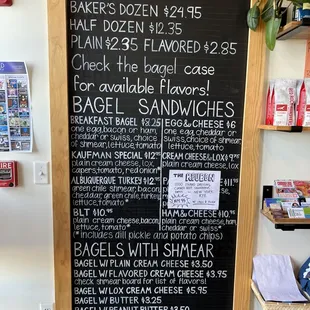 BAKER'S DOZEN $24.95
HALF DOZEN $12.35
PLAIN $2.35 FLAVORED $2.85
Check the bagel case
for available flavors!
BAGEL SANDWICHES
BREAKFAST BAGEL $8.25
one egg, bacon or ham,
cheddar or swiss, choice
of shmear, lettuce, tomato
KAUFMAN SPECIAL $12.95
plain cream cheese, lox,
capers, tomato, red onion
ALBUQUERQUE TKE $12.45
green chile shmear, bacon,
cheddar, green chile, turkey,
lettuce, tomato*
BLT $10.95
plain cream cheese, bacon,
lettuce, tomato*
EGG & CHEESE $6
one egg, cheddar
or swiss, choice of
shmear, lettuce,
tomato
CREAM CHEESE & LOX $9.95
plain cream cheese,
THE REUBEN
HAM & CHEESE $9.95
plain cream cheese,
cheddar or swiss*
(*includes dill pickle and potato chips)
BAGELS WITH SHMEAR
BAGEL W/ PLAIN CREAM CHEESE $3.50
BAGEL W/ FLAVORED CREAM CHEESE $3.95
check shmear board for list of flavors!
BAGEL W/ LOX CREAM CHEESE $5.95
BAGEL W/ BUTTER $3.25
BAGEL W/ PEANUT BUTTER $3.50
FIRE